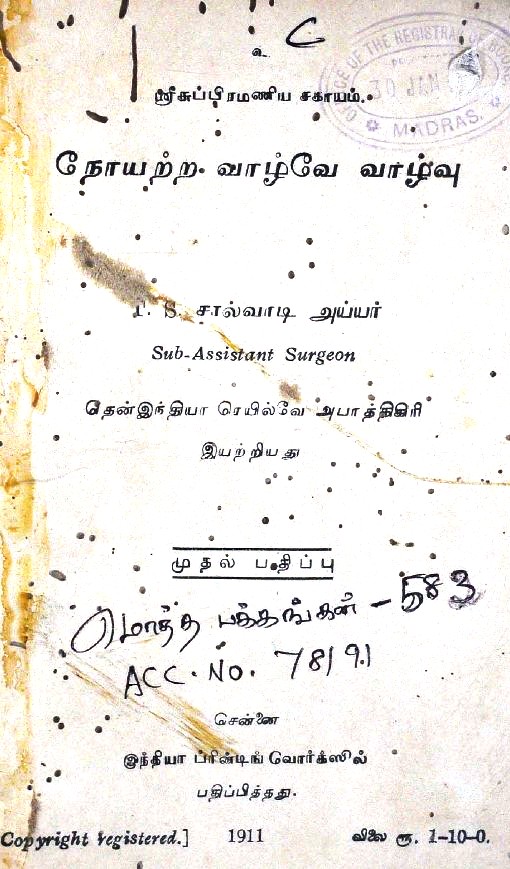 உ
ஸ்ரீசுப்பிரமணிய சகாயம்.
OFFICE OF THE REGISTRAR OF BOOKS
30 JAN
MADRAS.
நோயற்ற வாழ்வே வாழ்வு
S. சால்வாடி அய்யர்
Sub-Assistant Surgeon
தென்இந்தியா ரெயில்வே அபாத்திகிரி
இயற்றியது
முதல் பதிப்பு
மொத்த பக்கங்கள் - 583
ACC. NO. 78191
சென்னை
இந்தியா ப்ரின்டிங் வோர்க்ஸில்
பதிப்பித்தது.
Copyright registered.] 1911 விலை ரூ. 1-10-0.